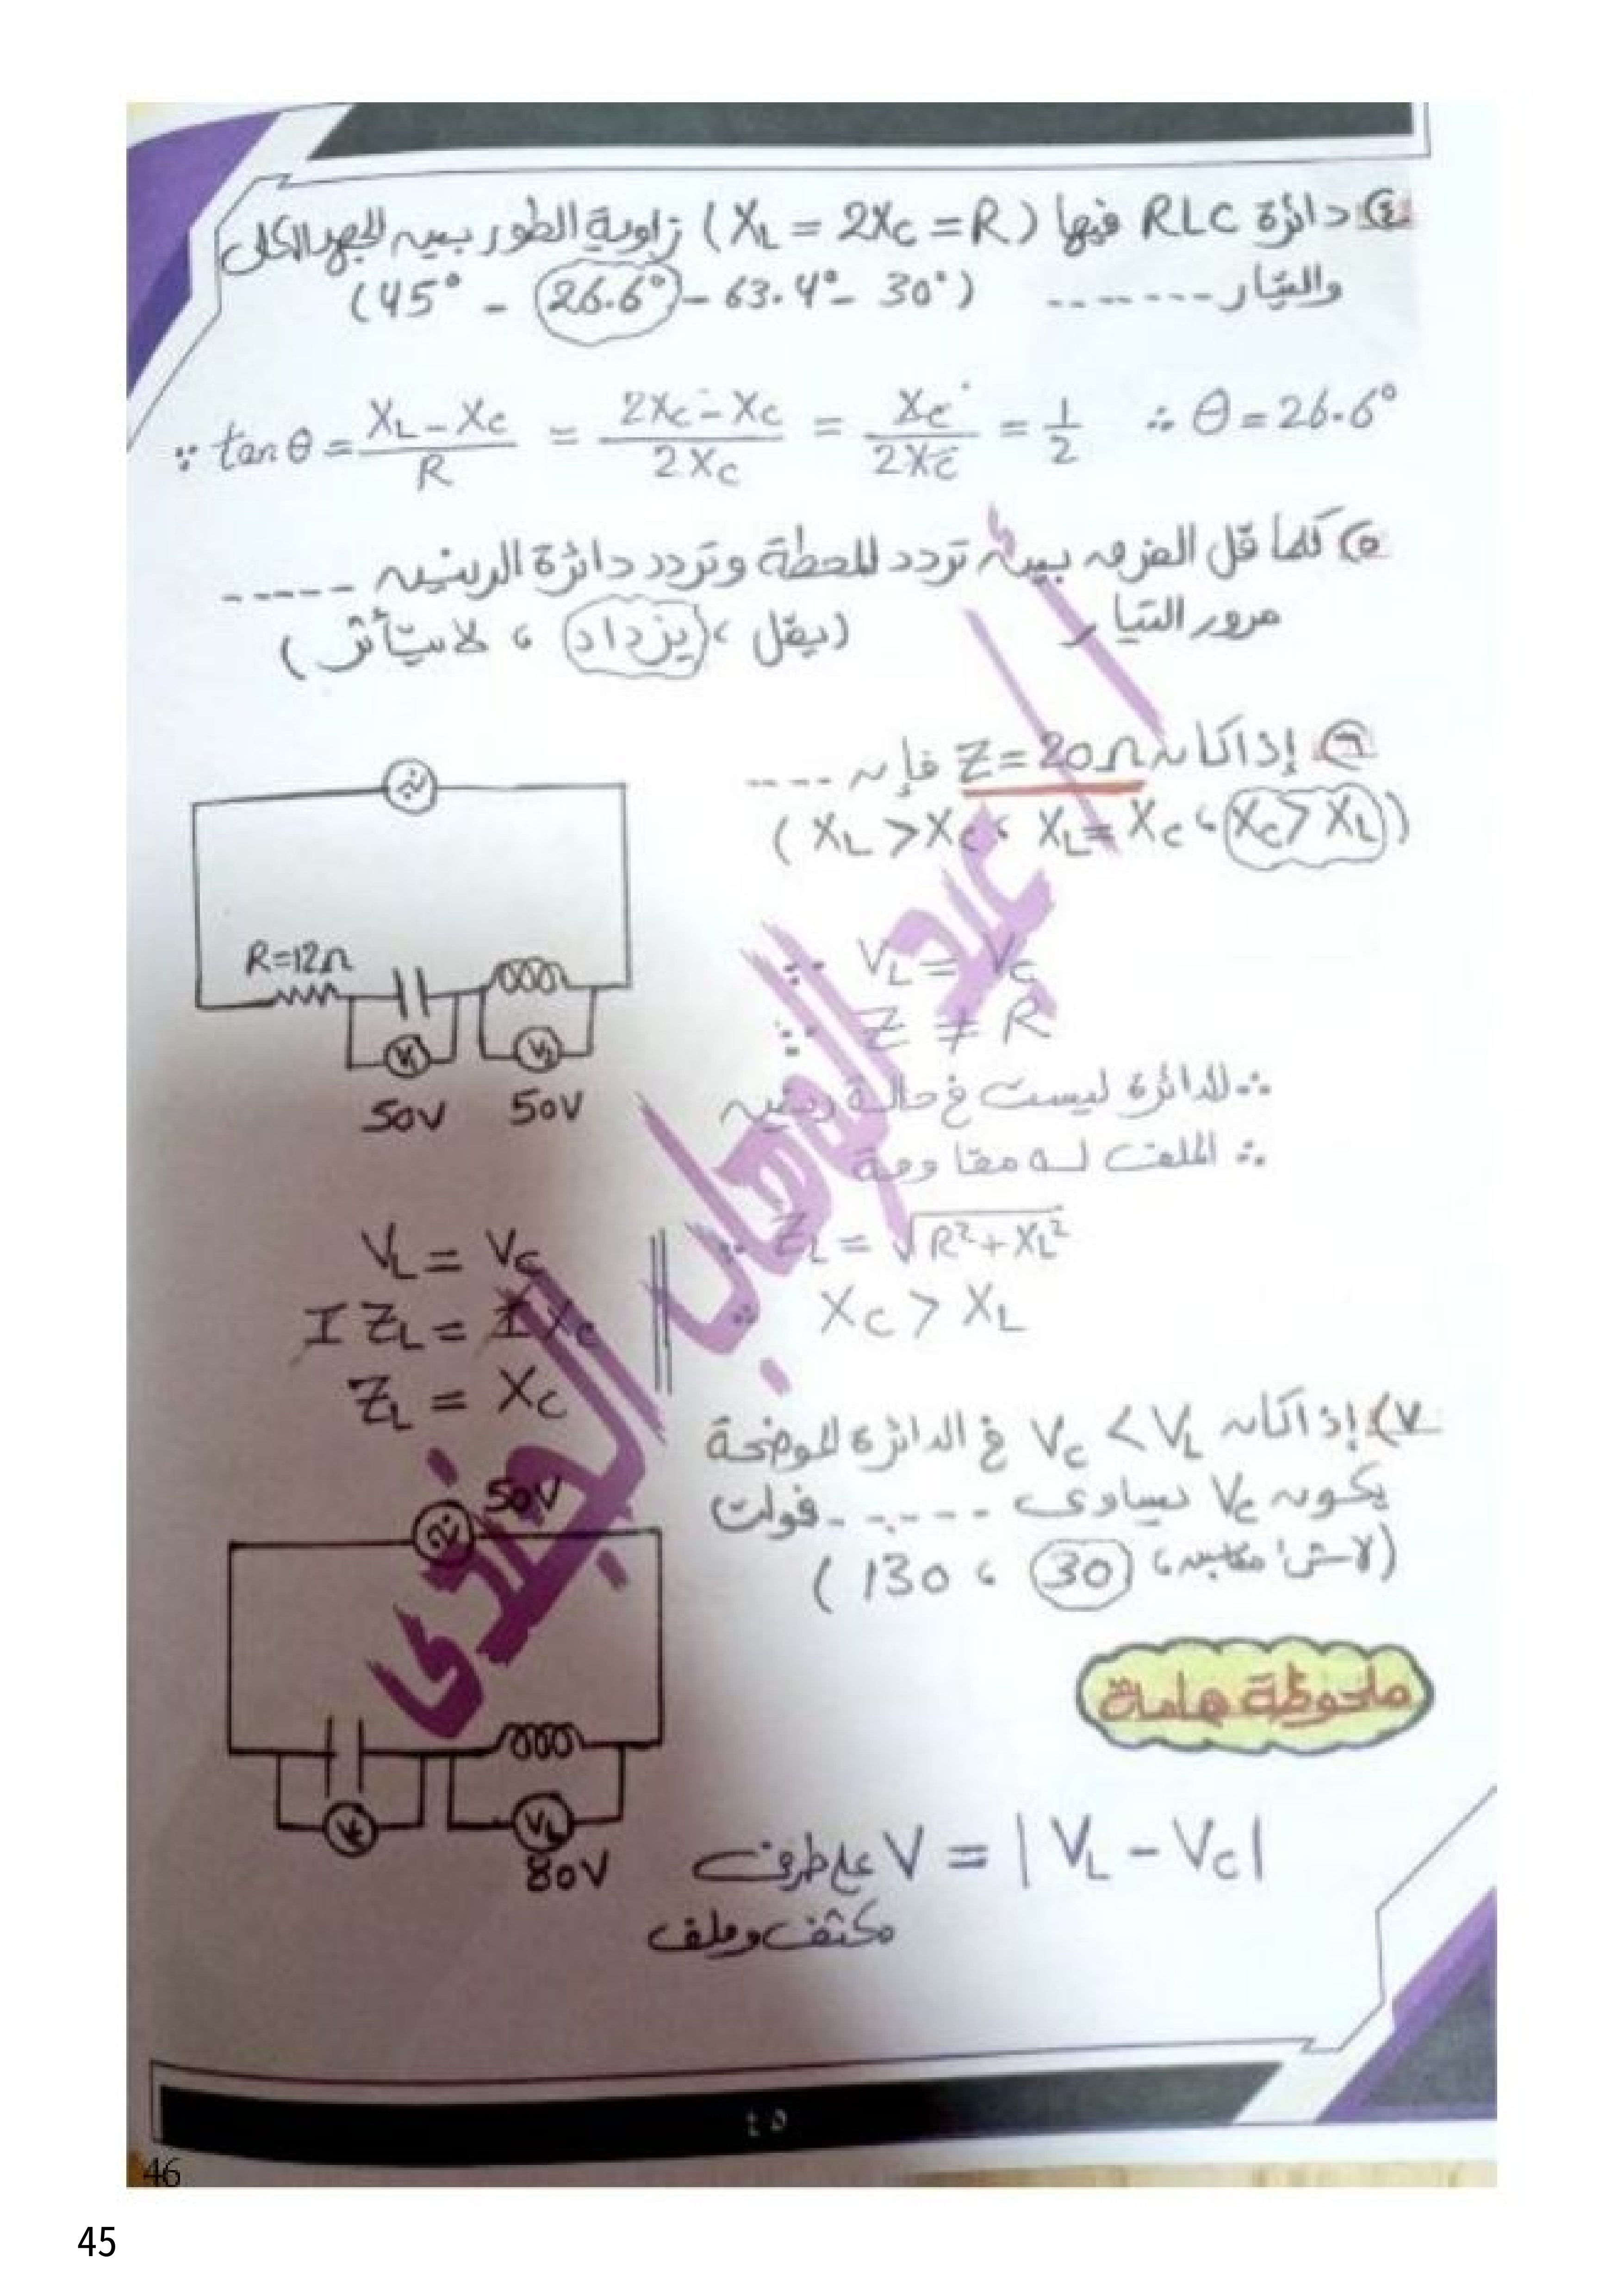 ٤) دائرة RLC فيها (XL = 2XC = R) زاوية الطور بين الجهد الكلى
والتيار ------- (45° - 26.6° - 63.4° - 30°)
∵ tan θ = XL - XC / R = 2XC - XC / 2XC = XC / 2XC = 1/2 ∴ θ = 26.6°
٥) كلما قل الفرق بين تردد المحطة وتردد دائرة الرنين -----
مرور التيار (يقل ، يزداد ، لا يتأثر)
٦) إذا كان Z = 20Ω فإن ----
(XL > XC ، XL = XC ، XC > XL)
R=12Ω
V1 V2
50V 50V
∵ VL = VC
∵ Z ≠ R
∴ الدائرة ليست فى حالة رنين
∴ الملف له مقاومة
∵ ZL = √R² + XL²
∴ XC > XL
VL = VC
I ZL = I XC
ZL = XC
٧) إذا كان VC < VL فى الدائرة الموضحة
يكون VC يساوى ------ فولت
(لا شئ مما سبق ، 30 ، 130)
50V
VC VL
80V
ملحوظة هامة
V على طرفى = |VL - VC|
مكثف وملف
عبد الوهاب الجندى
٤٥
46
45